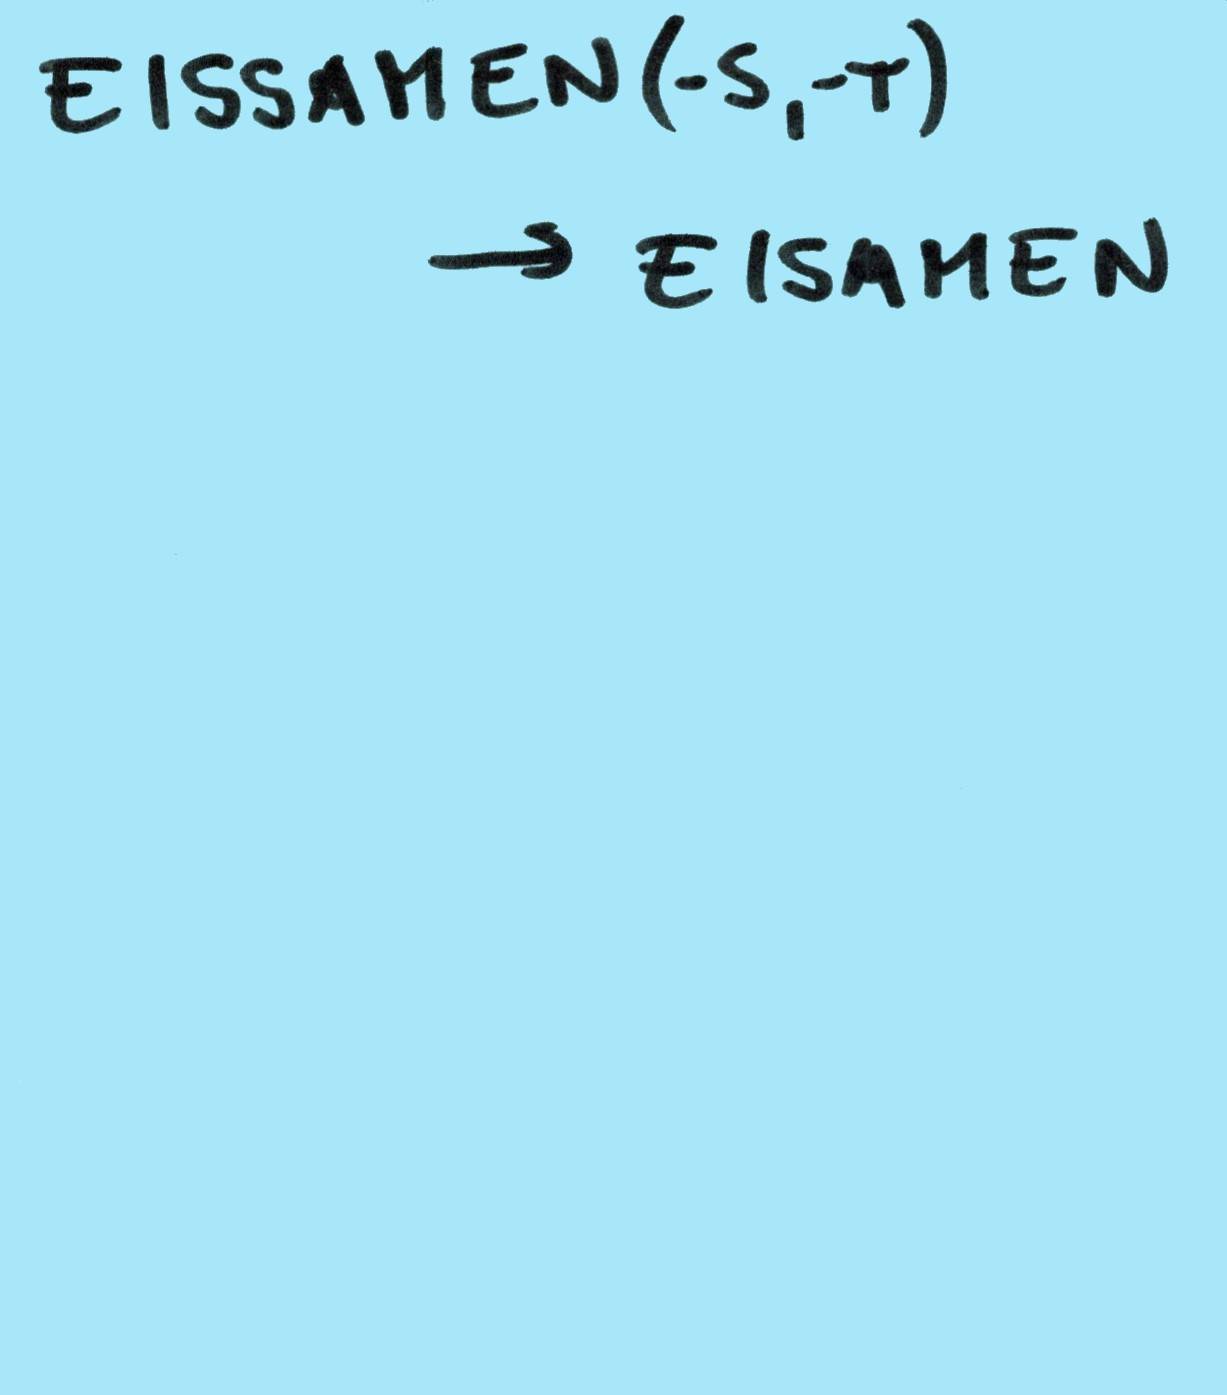 EISSAMEN(-S,-T)
→ EISAMEN